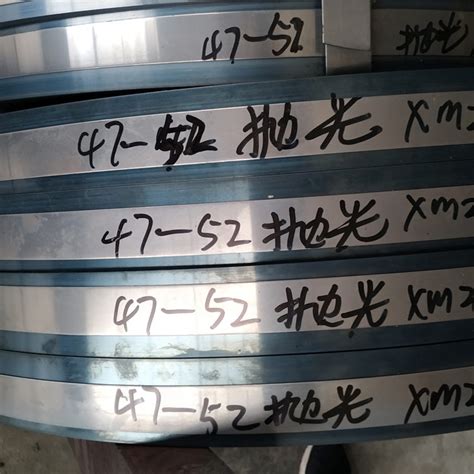 47-52 抛光
47-52 抛光 XM2
47-52 抛光 XM2
47-52 抛光 XM2
47-52 抛光 XM2